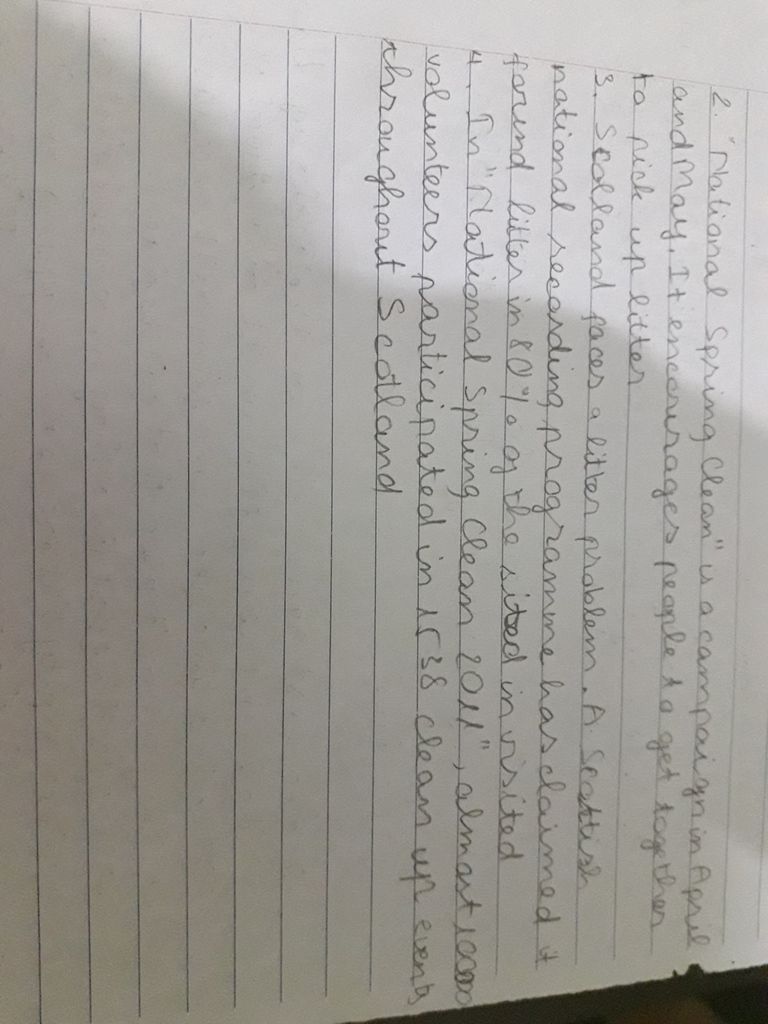 2. "National Spring Clean" is a campaign in April
and May. It encourages people to get together
to pick up litter
3. Scotland faces a litter problem. A Scottish
national recording programme has claimed it
found litter in 80% of the sited in visited
4. In "National Spring Clean 2011", almost
volunteers participated in 1538 clean up events
throughout Scotland